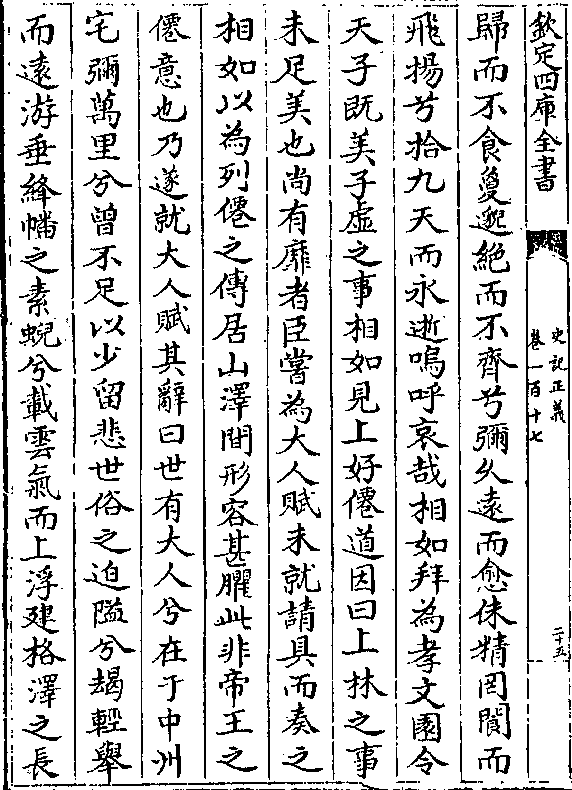 欽定四庫全書
史記正義
卷一百十七
二十五
歸而不食敻邈絶而不齊兮彌久遠而愈佅精罔閬而
飛揚兮拾九天而永逝嗚呼哀哉相如拜為孝文園令
天子既美子虛之事相如見上好僊道因曰上林之事
未足美也尚有靡者臣嘗為大人賦未就請具而奏之
相如以為列僊之傳居山澤間形容甚臞此非帝王之
僊意也乃遂就大人賦其辭曰世有大人兮在于中州
宅彌萬里兮曾不足以少留悲世俗之迫隘兮朅輕舉
而遠游垂絳幡之素蜺兮載雲氣而上浮建格澤之長